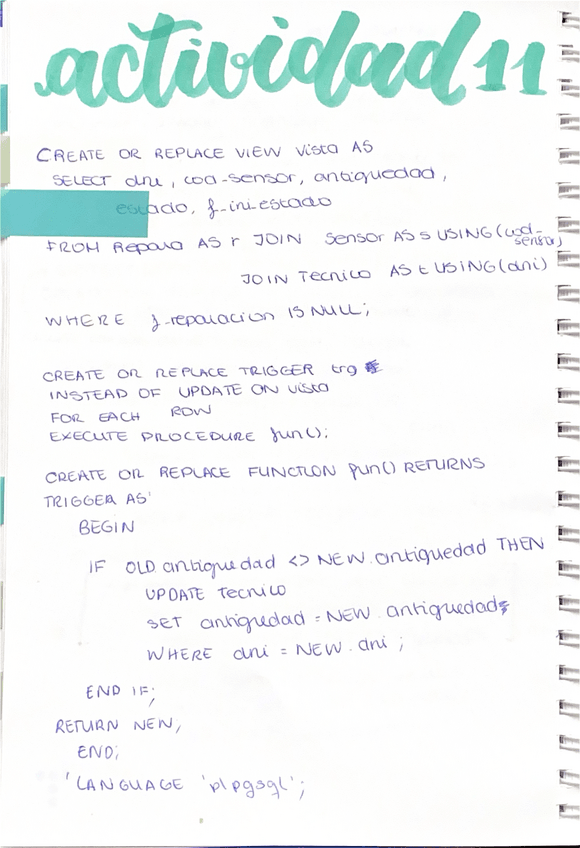 actividad 11
CREATE OR REPLACE VIEW vista AS
SELECT dni, cod-sensor, antiguedad,
estado, f-ini-estado
FROM Repara AS r JOIN Sensor AS s USING (cod-
sensor)
JOIN Tecnico AS t USING (dni)
WHERE f-reparacion IS NULL;
CREATE OR REPLACE TRIGGER trg
INSTEAD OF UPDATE ON vista
FOR EACH ROW
EXECUTE PROCEDURE fun();
CREATE OR REPLACE FUNCTION fun() RETURNS
TRIGGER AS '
BEGIN
IF OLD.antiguedad <> NEW.antiguedad THEN
UPDATE Tecnico
SET antiguedad = NEW.antiguedad
WHERE dni = NEW.dni;
END IF;
RETURN NEW;
END;
' LANGUAGE 'plpgsql';